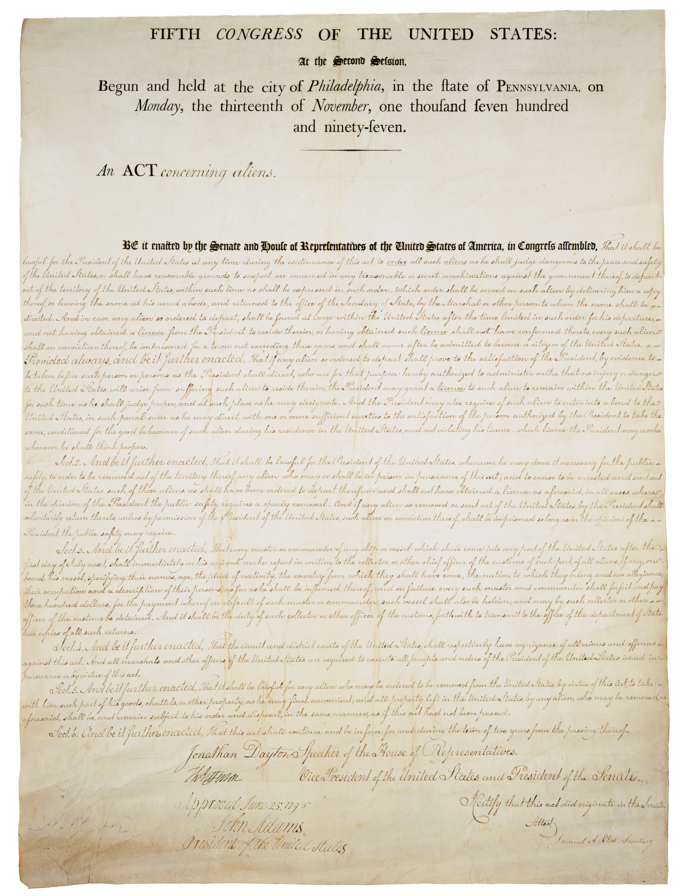 FIFTH CONGRESS OF THE UNITED STATES:
At the Second Seſsion,
Begun and held at the city of Philadelphia, in the ſtate of PENNSYLVANIA, on
Monday, the thirteenth of November, one thouſand ſeven hundred
and ninety-ſeven.
An ACT concerning aliens.
BE it enacted by the Senate and Houſe of Repreſentatives of the United States of America, in Congreſs aſſembled, That it shall be
lawful for the President of the United States at any time during the continuance of this act to order all such aliens as he shall judge dangerous to the peace and safety
of the United States, or shall have reasonable grounds to suspect are concerned in any treasonable or secret machinations against the government thereof, to depart
out of the territory of the United States, within such time as shall be expressed in such order. which order shall be served on such alien by delivering him a copy
thereof or leaving the same at his usual abode, and returned to the office of the Secretary of State, by the Marshal or other person to whom the same shall be di-
-rected. And in case any alien so ordered to depart, shall be found at large within the United States after the time limited in such order for his departure,
and not having obtained a licence from the President to reside therein, or having obtained such licence shall not have conformed thereto, every such alien
shall on conviction thereof, be imprisoned for a term not exceeding three years and shall never after be admitted to become a citizen of the United States.
Provided always, and be it further enacted, That if any alien so ordered to depart shall prove to the satisfaction of the President, by evidence to
be taken before such person or persons as the President shall direct, who are for that purpose hereby authorized to administer oaths, that no injury or danger
to the United States will arise from suffering such alien to reside therein, the President may grant a licence to such alien to remain within the United States
for such time as he shall judge proper, and at such place as he may designate. And the President may also require of such alien to enter into a bond to the
United States, in such penal sum as he may direct, with one or more sufficient sureties to the satisfaction of the person authorized by the President to take the
same, conditioned for the good behaviour of such alien during his residence in the United States, and not violating his licence, which licence the President may revoke
whenever he shall think proper.
Sect. 2. And be it further enacted, That it shall be lawful for the President of the United States, whenever he may deem it necessary for the public
safety, to order to be removed out of the territory thereof, any alien who may or shall be in prison in pursuance of this act; and to cause to be arrested and sent out
of the United States such of those aliens as shall have been ordered to depart therefrom and shall not have obtained a licence as aforesaid, in all cases where
in the opinion of the President the public safety requires a speedy removal. And if any alien so removed or sent out of the United States by the President shall
voluntarily return thereto, unless by permission of the President of the United States, such alien on conviction thereof, shall be imprisoned so long as in the opinion of the
President, the public safety may require.
Sect. 3. And be it further enacted, That every master or commander of any ship or vessel which shall come into any port of the United States after the
first day of July next, shall immediately on his arrival make report in writing to the collector or other chief officer of the customs of such port, of all aliens, if any, on
board his vessel, specifying their names, age, the place of nativity, the country from which they shall have come, the nation to which they belong and owe allegiance,
their occupation and a description of their persons, as far as he shall be informed thereof, and on failure, every such master and commander shall forfeit and pay
three hundred dollars, for the payment whereof on default of such master or commander, such vessel shall also be holden, and may by such collector or other
officer of the customs be detained. And it shall be the duty of such collector or other officer of the customs, forthwith to transmit to the office of the department of state
true copies of all such returns.
Sect. 4. And be it further enacted, That the circuit and district courts of the United States, shall respectively have cognizance of all crimes and offences
against this act. And all marshals and other officers of the United States are required to execute all precepts and orders of the President of the United States issued in
pursuance or by virtue of this act.
Sect. 5. And be it further enacted, That it shall be lawful for any alien who may be ordered to be removed from the United States, by virtue of this act, to take
with him such part of his goods, chattels or other property, as he may find convenient; and all property left in the United States, by any alien, who may be removed, as
aforesaid, shall be and remain subject to his order and disposal, in the same manner, as if this act had not been passed.
Sect. 6. And be it further enacted, That this act shall continue and be in force for and during the term of two years from the passing thereof.
Jonathan Dayton Speaker of the House of Representatives.
Th Jefferson Vice President of the United States and President of the Senate.
Approved June 25. 1798
John Adams
President of the United States.
I Certify that this act did originate in the Senate.
Attest,
Samuel A. Otis Secretary